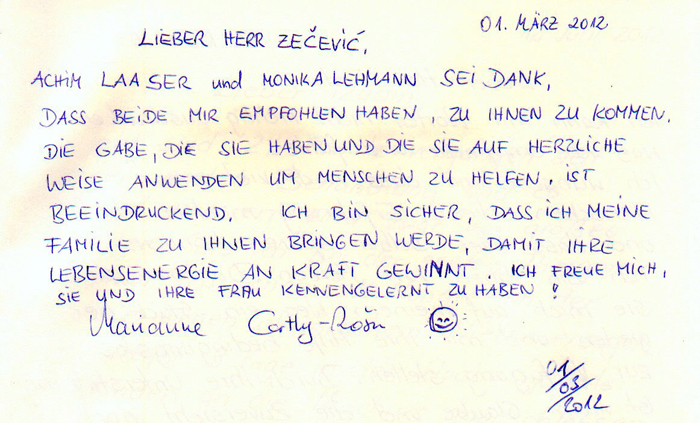 01. MÄRZ 2012
LIEBER HERR ZEČEVIĆ,
ACHIM LAASER und MONIKA LEHMANN SEI DANK,
DASS BEIDE MIR EMPFOHLEN HABEN, ZU IHNEN ZU KOMMEN.
DIE GABE, DIE SIE HABEN UND DIE SIE AUF HERZLICHE
WEISE ANWENDEN UM MENSCHEN ZU HELFEN, IST
BEEINDRUCKEND. ICH BIN SICHER, DASS ICH MEINE
FAMILIE ZU IHNEN BRINGEN WERDE, DAMIT IHRE
LEBENSENERGIE AN KRAFT GEWINNT. ICH FREUE MICH,
SIE UND IHRE FRAU KENNENGELERNT ZU HABEN!
Marianne
01/03/2012